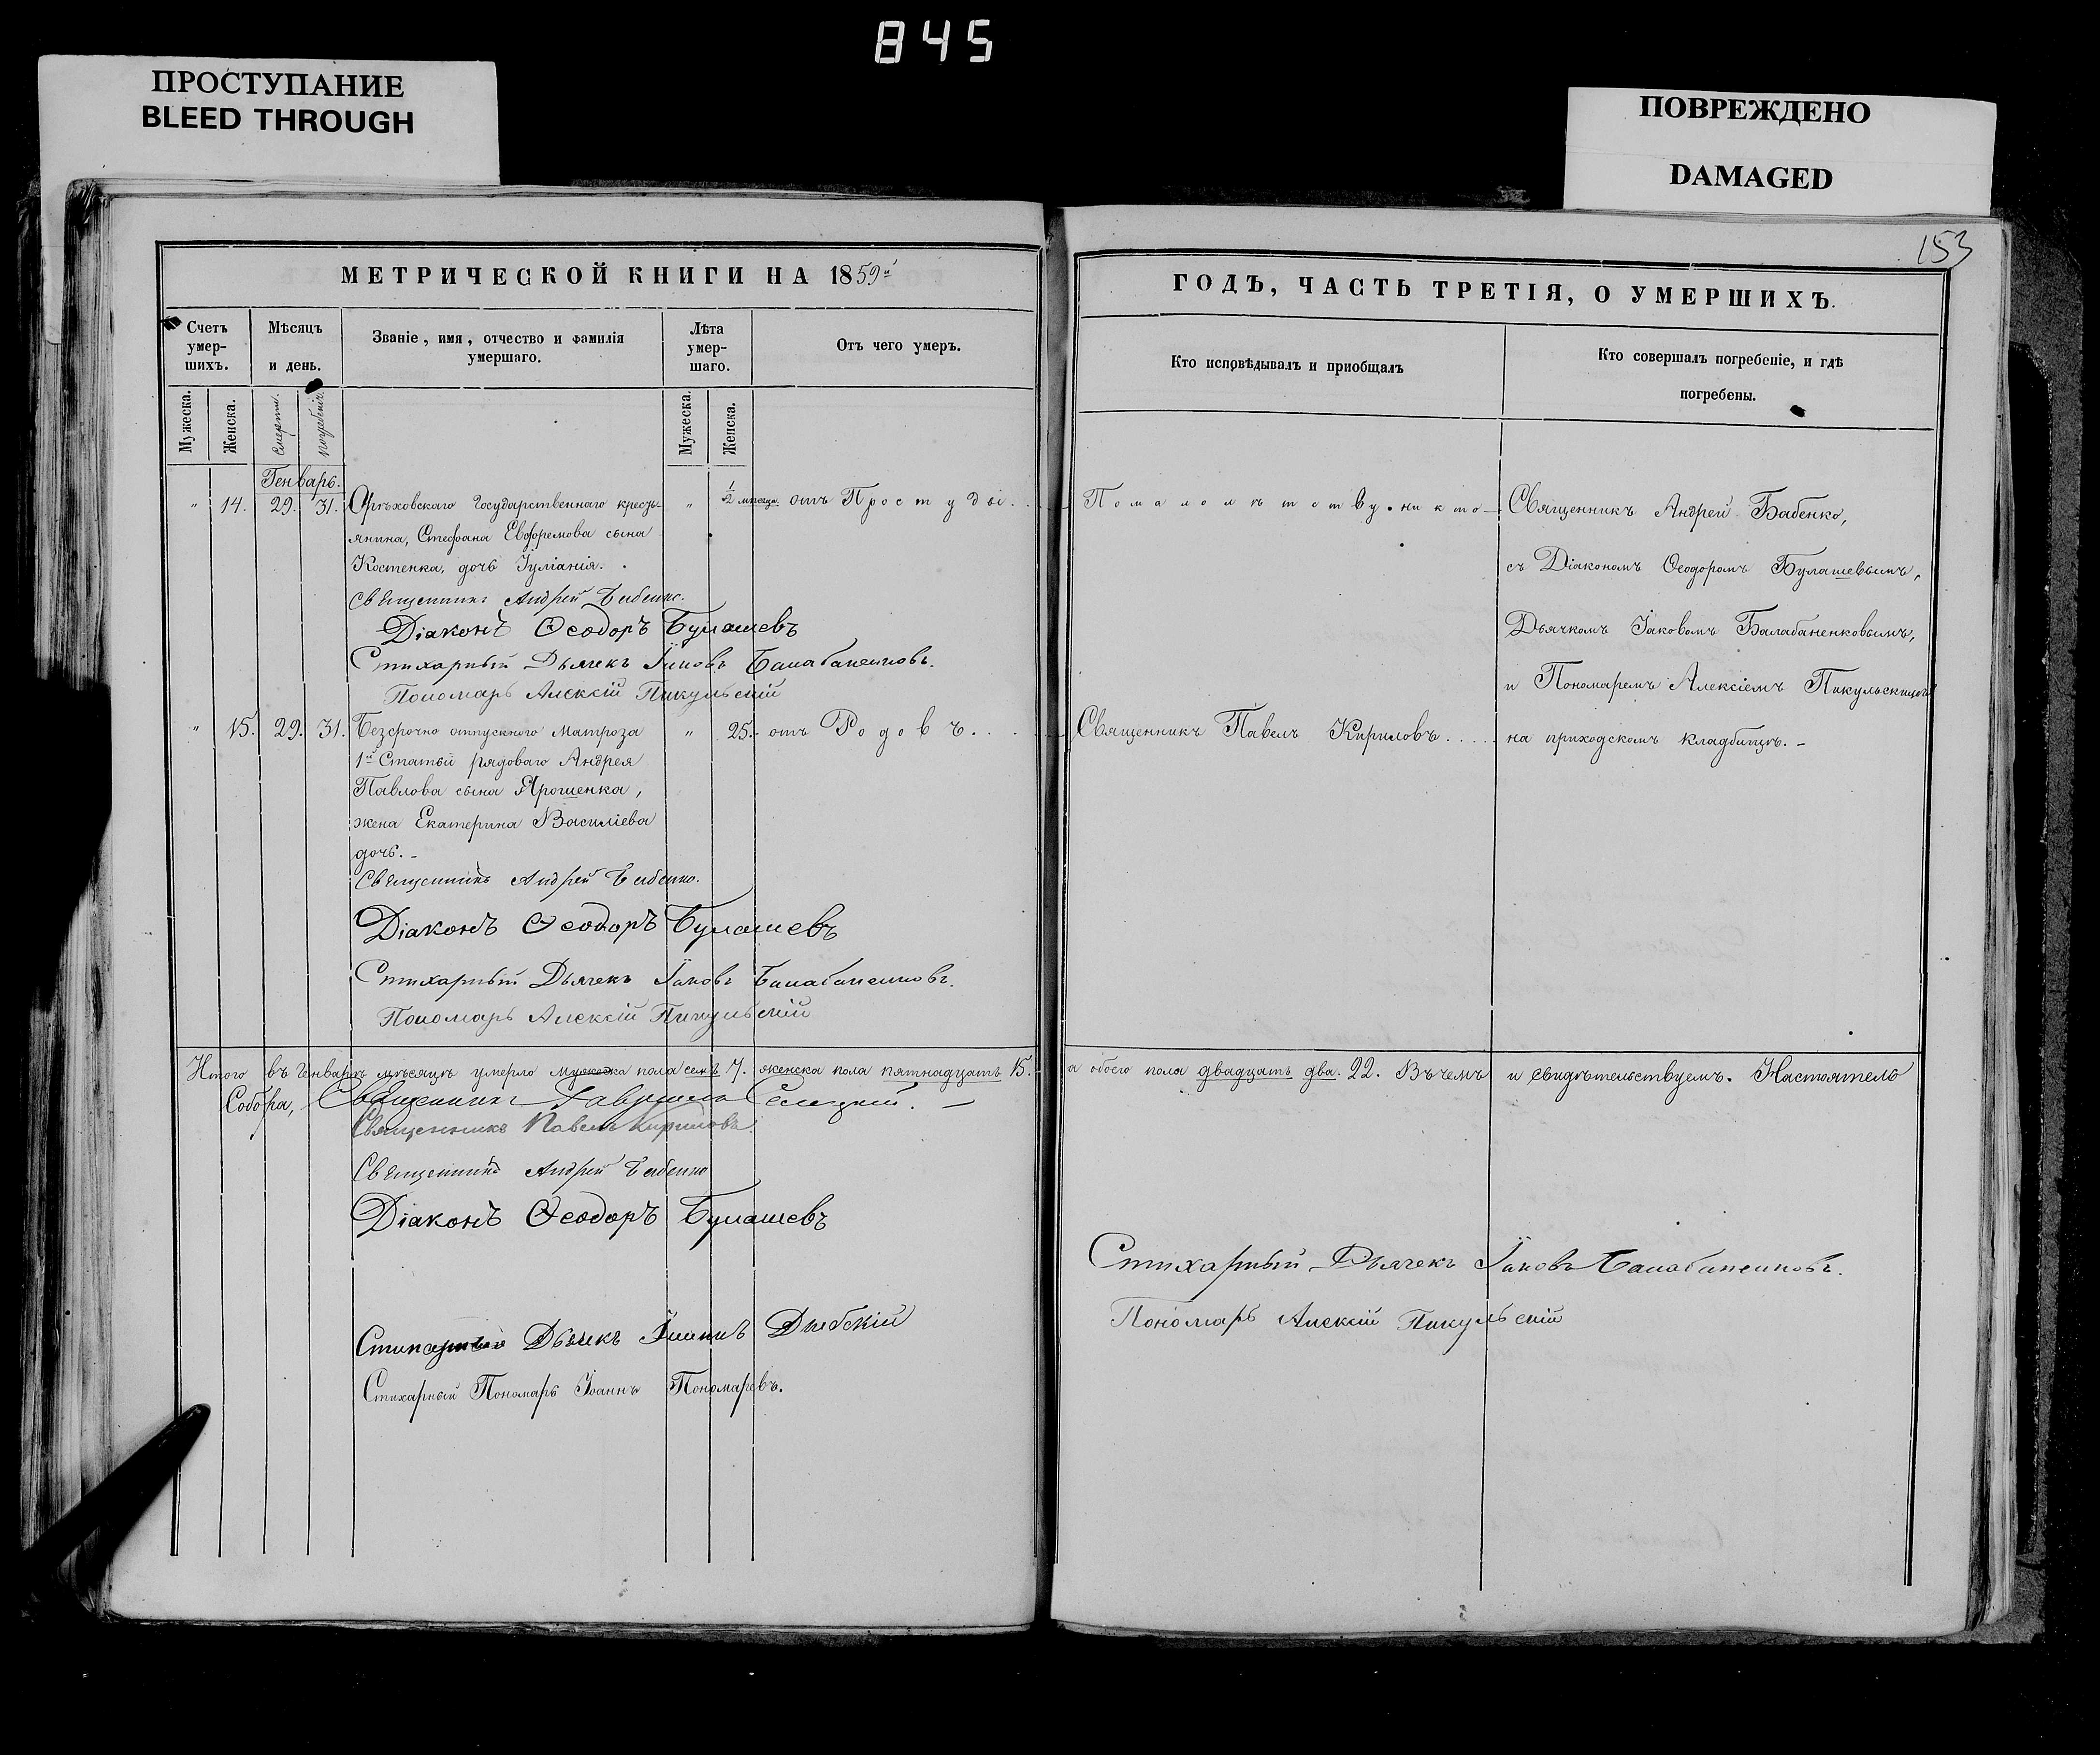 845
ПРОСТУПАНИЕ
BLEED THROUGH
ПОВРЕЖДЕНО
DAMAGED
153
МЕТРИЧЕСКОЙ КНИГИ НА 1859й
Счетъ умер-шихъ.
Мѣсяцъ и день.
Званіе, имя, отчество и фамилія умершаго.
Лѣта умер-шаго.
Отъ чего умеръ.
Мужеска.
Женска.
Смерти.
погребенія.
Мужеска.
Женска.
Генварь.
" 14. 29. 31. Орѣховскаго Государственнаго кресть- " 1/2 месяца. отъ Простуды...
янина, Стефана Евфремова сына
Костенка, дочь Іуліанія.
Священникъ Андрей Бабенко.
Діаконъ Ѳеодоръ Булашевъ
Стихарный Дьячекъ Іаковъ Балабаненковъ.
Пономарь Алексій Пикульскій
" 15. 29. 31. Безсрочно отпускного Матроза " 25. отъ Родовъ...
1й Статьи рядоваго Андрея
Павлова сына Ярошенка,
жена Екатерина Василіева
дочь.-
Священникъ Андрей Бабенко.
Діаконъ Ѳеодоръ Булашевъ
Стихарный Дьячекъ Іаковъ Балабаненковъ.
Пономарь Алексій Пикульскій
Итого въ Генварѣ мѣсяцѣ умерло мужеска пола семь 7. женска пола пятнадцать 15.
Собора, Священникъ Гавриилъ
Священникъ Павелъ Кириловъ
Священникъ Андрей Бабенко
Діаконъ Ѳеодоръ Булашевъ
Дьячекъ
Стихарный Пономарь Іоаннъ Пономаревъ.
ГОДЪ, ЧАСТЬ ТРЕТІЯ, О УМЕРШИХЪ.
Кто исповѣдывалъ и приобщалъ
Кто совершалъ погребеніе, и гдѣ погребены.
По малолѣтству никто - Священникъ Андрей Бабенко,
съ Діакономъ Ѳеодоромъ Булашевымъ,
Дьячкомъ Іаковомъ Балабаненковымъ,
и Пономаремъ Алексіемъ Пикульскимъ
Священникъ Павелъ Кириловъ..... на приходскомъ кладбищѣ.-
а обоего пола двадцать два. 22. Въ чемъ и свидѣтельствуемъ. Настоятель
Стихарный Дьячекъ Іаковъ Балабаненковъ.
Пономарь Алексій Пикульскій